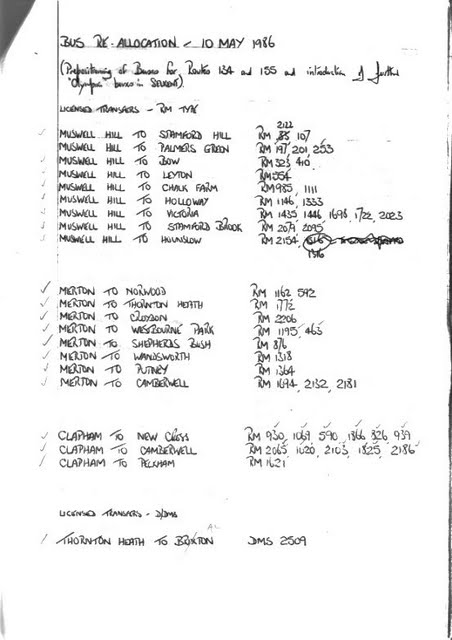 BUS RE-ALLOCATION - 10 MAY 1986
(Prepositioning of Buses for Routes 134 and 155 and introduction of further
"Olympic" buses in STUDENT).
LICENSED TRANSFERS - RM TYPE
2122
MUSWELL HILL TO STAMFORD HILL RM 85 107
MUSWELL HILL TO PALMERS GREEN RM 197, 201, 253
MUSWELL HILL TO BOW RM 323, 410
MUSWELL HILL TO LEYTON RM 554
MUSWELL HILL TO CHALK FARM RM 985, 1111
MUSWELL HILL TO HOLLOWAY RM 1146, 1333
MUSWELL HILL TO VICTORIA RM 1435, 1446, 1698, 1722, 2023
MUSWELL HILL TO STAMFORD BROOK RM 2079, 2095
MUSWELL HILL TO HOUNSLOW RM 2154,
1316
MERTON TO NORWOOD RM 1162, 592
MERTON TO THORNTON HEATH RM 1772
MERTON TO CROYDON RM 2206
MERTON TO WESTBOURNE PARK RM 1195, 463
MERTON TO SHEPHERDS BUSH RM 876
MERTON TO WANDSWORTH RM 1318
MERTON TO PUTNEY RM 1364
MERTON TO CAMBERWELL RM 1694, 2132, 2181
CLAPHAM TO NEW CROSS RM 930, 1069, 590, 1866, 826, 939
CLAPHAM TO CAMBERWELL RM 2065, 1020, 2103, 1825, 2186
CLAPHAM TO PECKHAM RM 1621
LICENSED TRANSFERS - D/DMS
AL
THORNTON HEATH TO BRIXTON DMS 2509